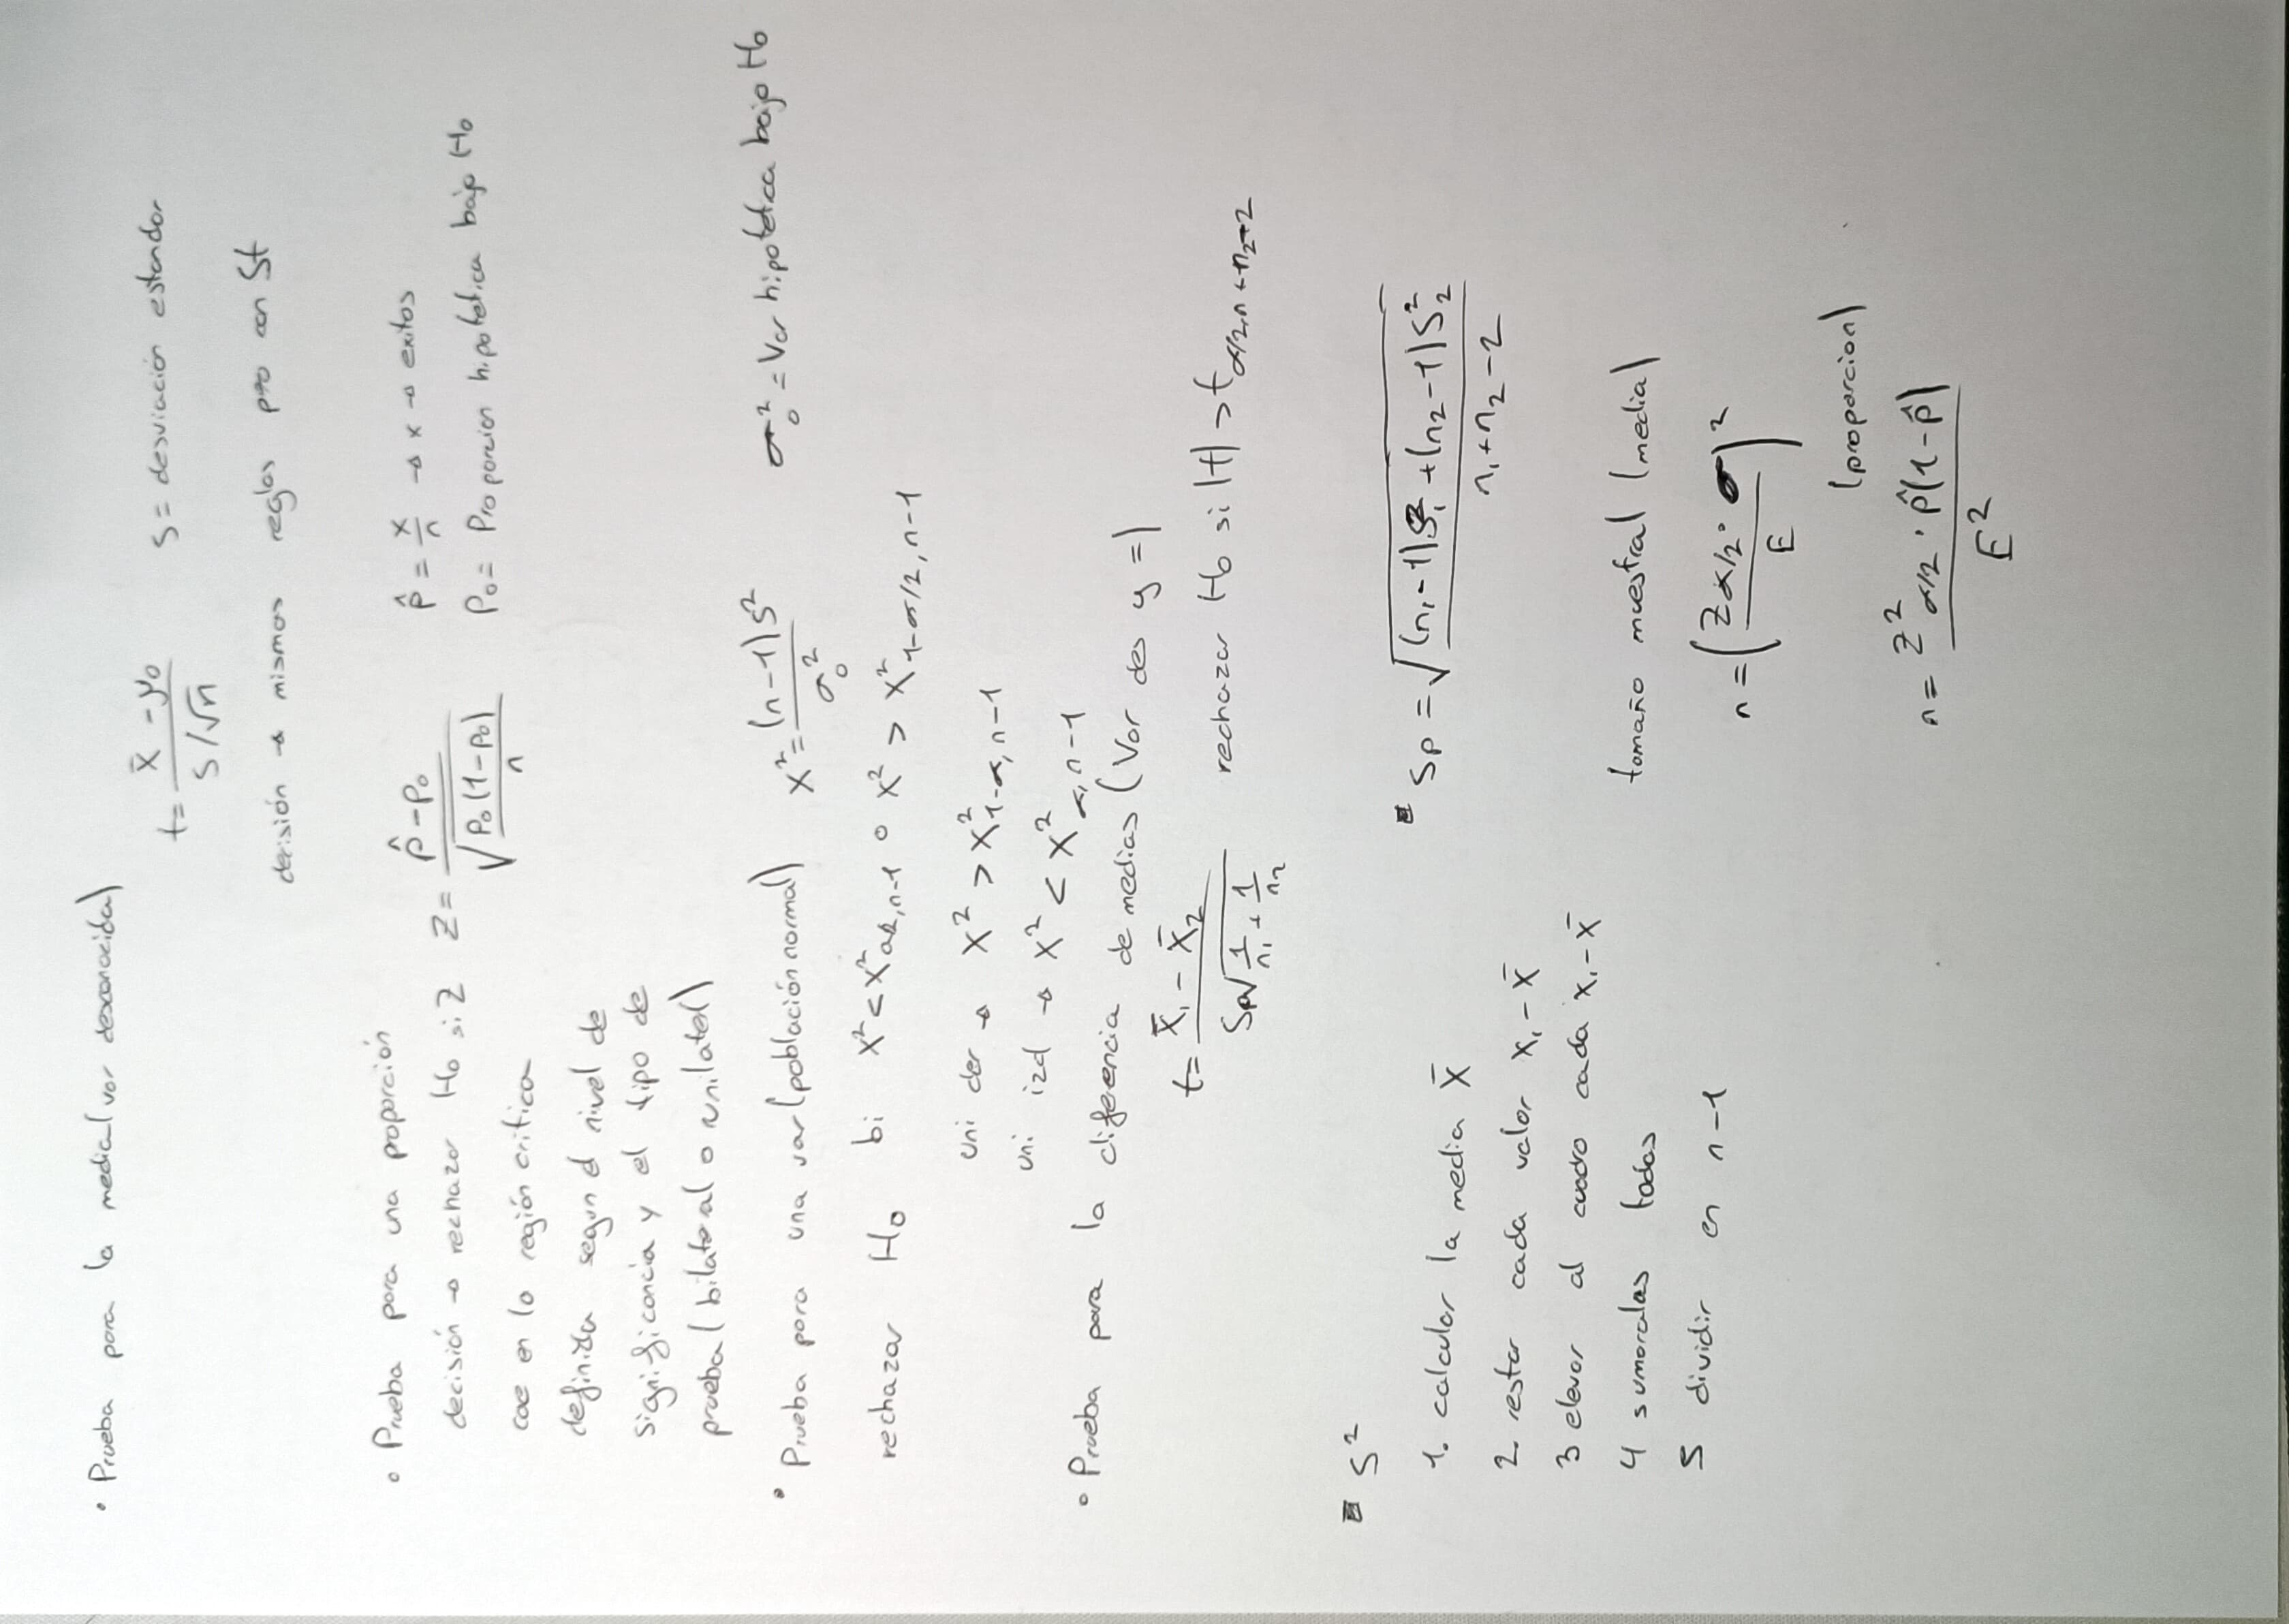 • Prueba para la media (var desconocida)
t = (x̄ - μ0) / (S/√n)
S = desviación estandar
decisión → mismas reglas pero con St
• Prueba para una proporción
decisión → rechazar H0 si Z
cae en la región critica
definida segun el nivel de
significancia y el tipo de
prueba (bilateral o unilateral)
Z = (p̂ - p0) / √(p0(1-p0)/n)
p̂ = x/n → x → exitos
P0 = Proporcion hipotetica bajo H0
• Prueba para una var (población normal)
X² = (n-1)S² / σ0²
σ0² = Var hipotetica bajo H0
rechazar H0 bi X² < X²α/2, n-1 o X² > X²1-α/2, n-1
uni der → X² > X²1-α, n-1
uni izd → X² < X²α, n-1
• Prueba para la diferencia de medias (Var des y =)
t = (x̄1 - x̄2) / (Sp√(1/n1 + 1/n2))
rechazar H0 si |t| > tα/2, n+n2-2
▪ S²
1. calcular la media x̄
2. restar cada valor x1 - x̄
3 elevar al cuadro cada x1 - x̄
4 sumaralas todas
5 dividir en n-1
▪ Sp = √(((n1-1)S1² + (n2-1)S2²) / (n1+n2-2))
tamaño muestral (media)
n = ((Zα/2 · σ) / E)²
(proporcion)
n = (Z²α/2 · p̂(1-p̂)) / E²